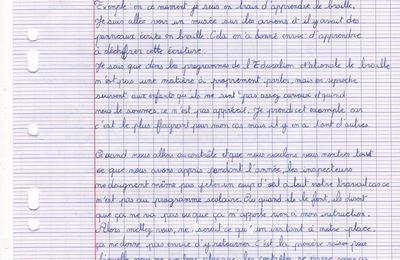 Exemple : en ce moment je suis en train d'apprendre le braille.
Je suis allée voir un musée sur les avions et il y avait des
panneaux écrits en braille. Cela m'a donné envie d'apprendre
à déchiffrer cette écriture.
Je sais que dans les programmes de l'Education Nationale le braille
n'est pas une matière à proprement parler, mais on reproche
souvent aux enfants qu'ils ne sont pas assez curieux et quand
nous le sommes, ce n'est pas apprécié. Je prends cet exemple car
c'est le plus flagrant pour mon cas mais il y en a tant d'autres.
Quand nous allons au contrôle et que nous voulons vous montrer tout
ce que nous avons appris pendant l'année, les inspecteurs
ne daignent même pas jeter un coup d'oeil à tout notre travail car ce
n'est pas au programme scolaire. Ou quand ils le font, ils disent
que ça ne va pas ou que ça n'apporte rien à mon instruction.
Alors mettez-vous, ne serait ce qu'un instant à notre place,
ça ne donne pas envie d'y retourner. C'est la première raison pour
laquelle nous ne voulons plus que les contrôles se passe comme ça